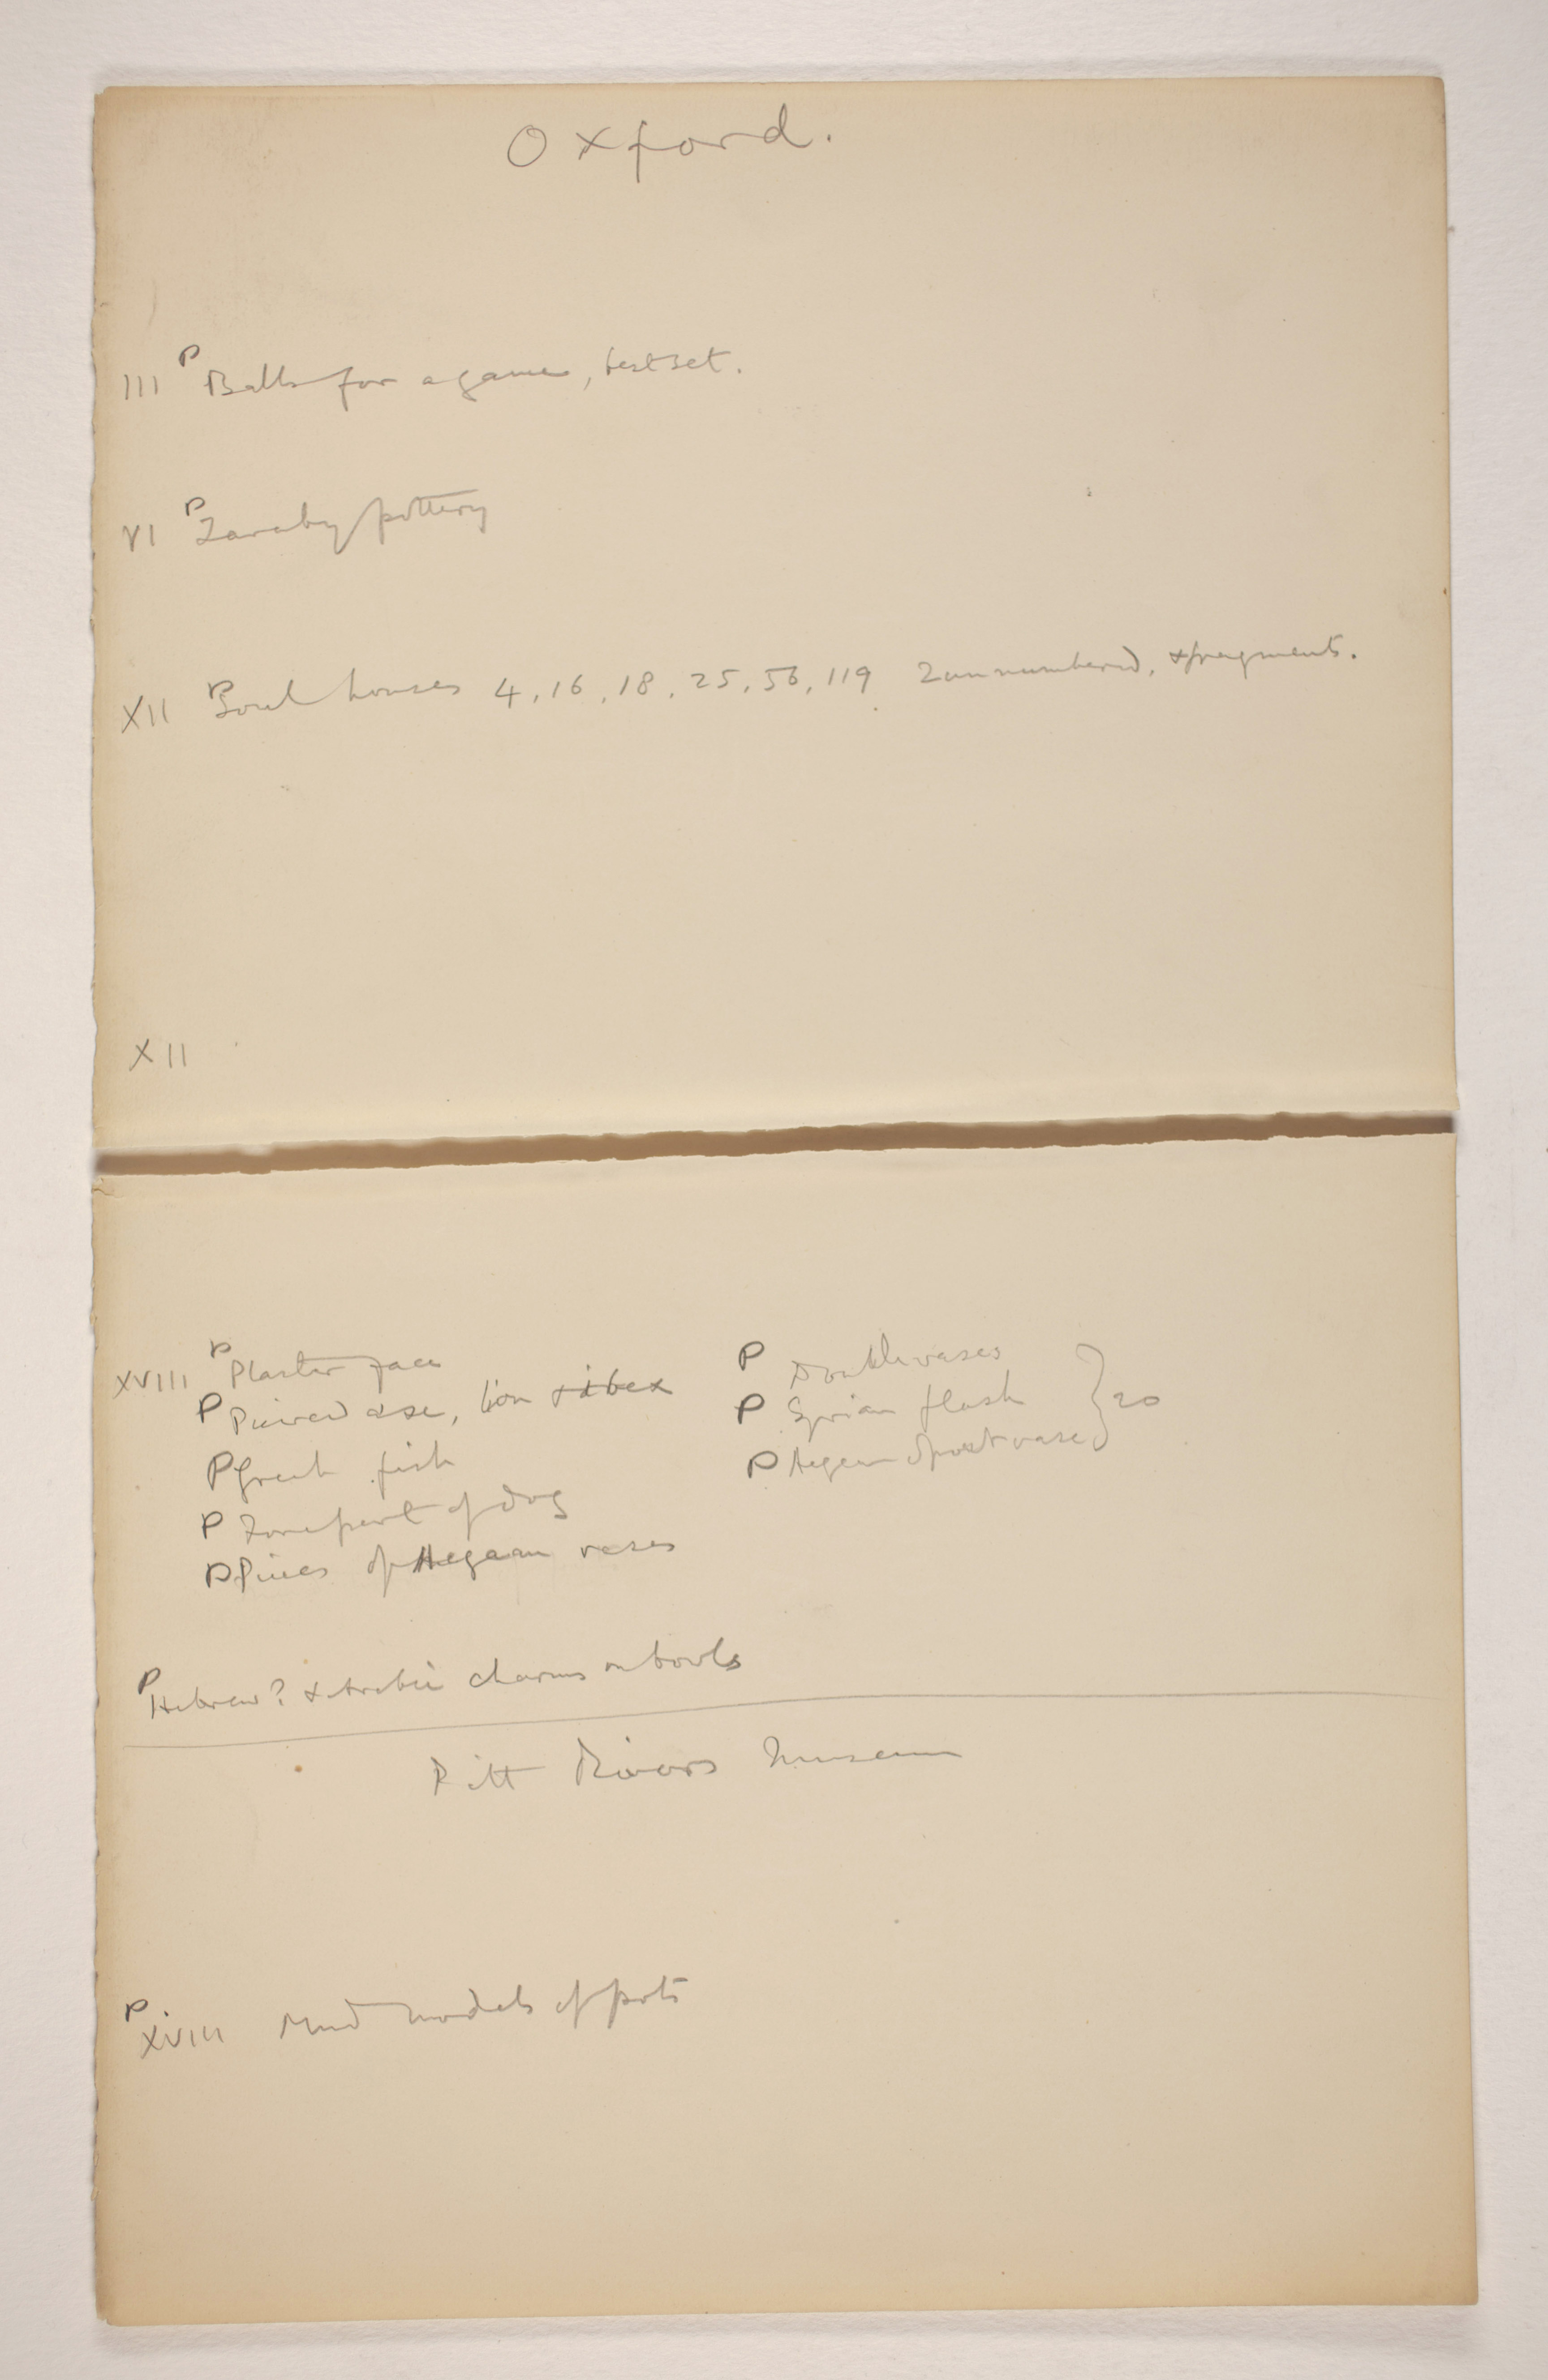 Oxford.
III P Balls for a game, best set.
VI P Zaraby pottery
XII P Soul houses 4, 16, 18, 25, 56, 119 2 unnumbered, & fragments.
XII
XVIII P Plaster face
P Pierced dsc, lion & ibex
P Greek fish
P Forepart of dog
P Pieces of Aegean vases
P Double vases
P Syrian flask
P Aegean spout vase } 20
P Hebrew? & Arabic charms on bowls
Pitt Rivers Museum
P XVIII Mud models of pots